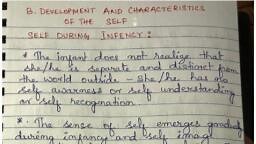 B. DEVELOPMENT AND CHARACTERISTICS
OF THE SELF
SELF DURING INFENCY :
* The infant does not realize that
she/he is separate and distinct from
the world outside - she/he has no
self awareness or self understanding
or self recognation
* The sense of self emerges gradually
during infancy and self image